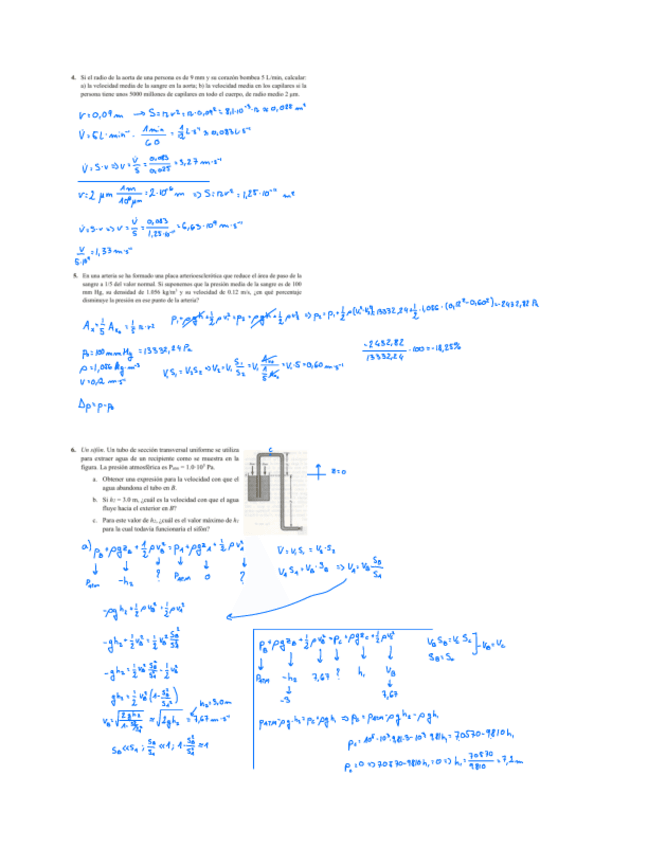 4. Si el radio de la aorta de una persona es de 9 mm y su corazón bombea 5 L/min, calcular:
a) la velocidad media de la sangre en la aorta; b) la velocidad media en los capilares si la
persona tiene unos 5000 millones de capilares en todo el cuerpo, de radio medio 2 μm.
r = 0,09 m → S = πr² = π·0,09² = 8,1·10⁻³·π ≈ 0,025 m²
V̇ = 5 L·min⁻¹ · 1min/60 = 1/12 L·s⁻¹ ≈ 0,083 L·s⁻¹
V̇ = S·v ⇒ v = V̇/S = 0,083/0,025 = 3,27 m·s⁻¹
r = 2 μm · 1m/10⁶μm = 2·10⁻⁶ m ⇒ S = πr² = 1,25·10⁻¹¹ m²
V̇ = S·v ⇒ v = V̇/S = 0,083/1,25·10⁻¹¹ = 6,63·10⁹ m·s⁻¹
v/5·10⁹ = 1,33 m·s⁻¹
5. En una arteria se ha formado una placa arteriosclerótica que reduce el área de paso de la
sangre a 1/5 del valor normal. Si suponemos que la presión media de la sangre es de 100
mm Hg, su densidad de 1.056 kg/m³ y su velocidad de 0.12 m/s, ¿en qué porcentaje
disminuye la presión en ese punto de la arteria?
p₁ + ρgh + ½ρv₁² = p₂ + ρgh + ½ρv₂² ⇒ p₂ = p₁ + ½ρ(v₁²-v₂²) = 13332,24 + ½·1,056·(0,12²-0,60²) = -2432,82 Pa
p₀ = 100 mmHg = 13332,24 Pa
ρ = 1,056 kg·m⁻³
v = 0,12 m·s⁻¹
v₁S₁ = v₂S₂ ⇒ v₂ = v₁ S₁/S₂ = v₁·5 = 0,60 m·s⁻¹
-2432,82/13332,24 · 100 = -18,25%
Δp = p - p₀
6. Un sifón. Un tubo de sección transversal uniforme se utiliza
para extraer agua de un recipiente como se muestra en la
figura. La presión atmosférica es Pₐₜₘ = 1.0·10⁵ Pa.
C
z=0
a. Obtener una expresión para la velocidad con que el
agua abandona el tubo en B.
b. Si h₂ = 3.0 m, ¿cuál es la velocidad con que el agua
fluye hacia el exterior en B?
c. Para este valor de h₂, ¿cuál es el valor máximo de h₁
para la cual todavía funcionaría el sifón?
a) p_B + ρgz_B + ½ρv_B² = p_A + ρgz_A + ½ρv_A²
↓ ↓ ↓ ↓ ↓ ↓
Patm -h₂ ? Patm 0 ?
V̇ = v₁S₁ = v₂·S₂
v_A S_A = v_B·S_B ⇒ v_A = v_B S_B/S_A
-ρgh₂ + ½ρv_B² = ½ρv_A²
-gh₂ + ½v_B² = ½v_B² S_B²/S_A²
-gh₂ = ½v_B² S_B²/S_A² - ½v_B²
gh₂ = ½v_B² (1 - S_B²/S_A²)
h₂=3,0m
v_B = √(2gh₂/(1 - S_B²/S_A²)) ≈ √(2gh₂) = 7,67 m·s⁻¹
S_B << S_A ; S_B/S_A << 1 ; 1 - S_B²/S_A² ≈ 1
p_B + ρgz_B + ½ρv_B² = p_C + ρgz_C + ½ρv_C²
↓ ↓ ↓ ↓ ↓ ↓
Patm -h₂ 7,67 ? h₁ v_B
↓ ↓
-3 7,67
v_B S_B = v_C S_C
S_B = S_C
v_B = v_C
Patm - ρg·h₂ = p_C + ρgh₁ ⇒ p_C = Patm - ρgh₂ - ρgh₁
p_C = 10⁵ - 10³·9,81·3 - 10³·9,81h₁ = 70570 - 9810h₁
p_C = 0 ⇒ 70570 - 9810h₁ = 0 ⇒ h₁ = 70570/9810 = 7,2m